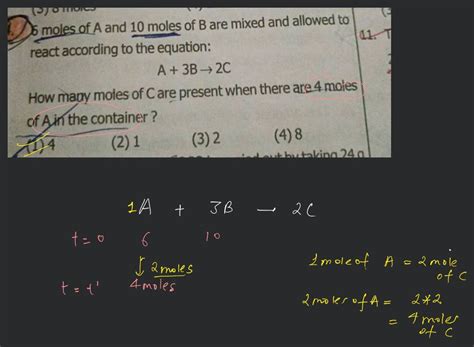 (3) 8 moles
6 moles of A and 10 moles of B are mixed and allowed to
react according to the equation:
A + 3B → 2C
How many moles of C are present when there are 4 moles
of A in the container ?
(1) 4 (2) 1 (3) 2 (4) 8
by taking 24 g
11.
1A + 3B → 2C
t=0 6 10
↓ 2moles
t=t' 4moles
1mole of A = 2mole
of C
2moles of A = 2*2
= 4 moles
of C